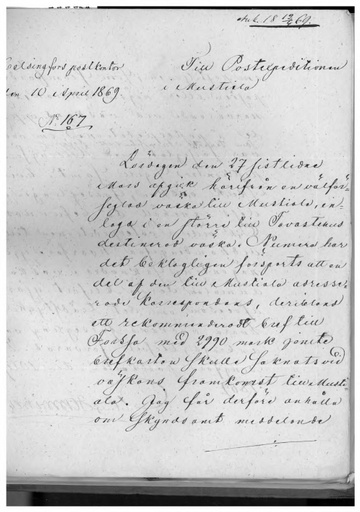 Ank. 18 12/4 69.
Helsingfors postkontor
den 10 April 1869.
Till Postexpeditionen
i Mustiala
No 167
Lördagen den 27 sistlidne
Mars afgick härifrån en välför-
seglad väska till Mustiala, in-
lagd i en större till Tavastehus
destinerad väska. Numera har
det beklagligen försports att en
del af den till Mustiala adresse-
rade korrespondens, deribland
ett rekommenderadt bref till
med 2990 mark jemte
brefkarton skulle saknats vid
väskans framkomst till Musti-
ala. Jag får derföre anhålla
om skyndsamt meddelande